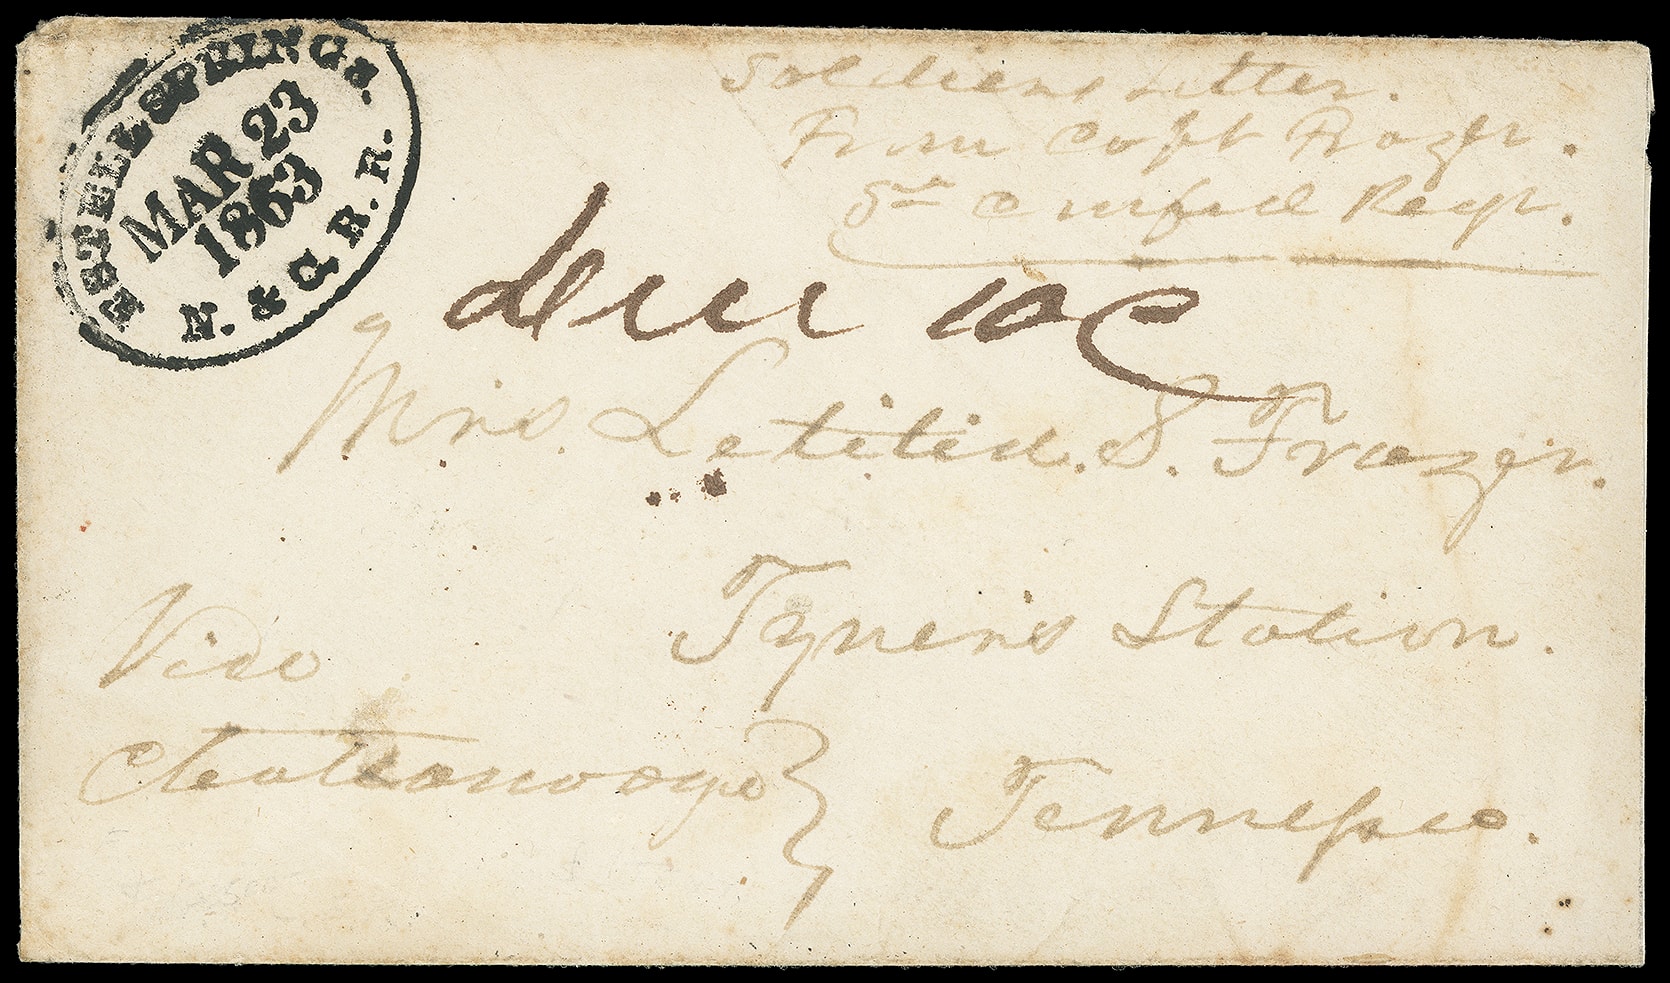 ESTELL SPRINGS.
MAR 23
1863
N. & C. R. R.
Soldiers Letter.
From Capt Frazer.
5th Confed Regt.
Due 10c
Mrs. Letitia. S. Frazer.
Tyners Station.
Via
Chattanooga
Tennessee.